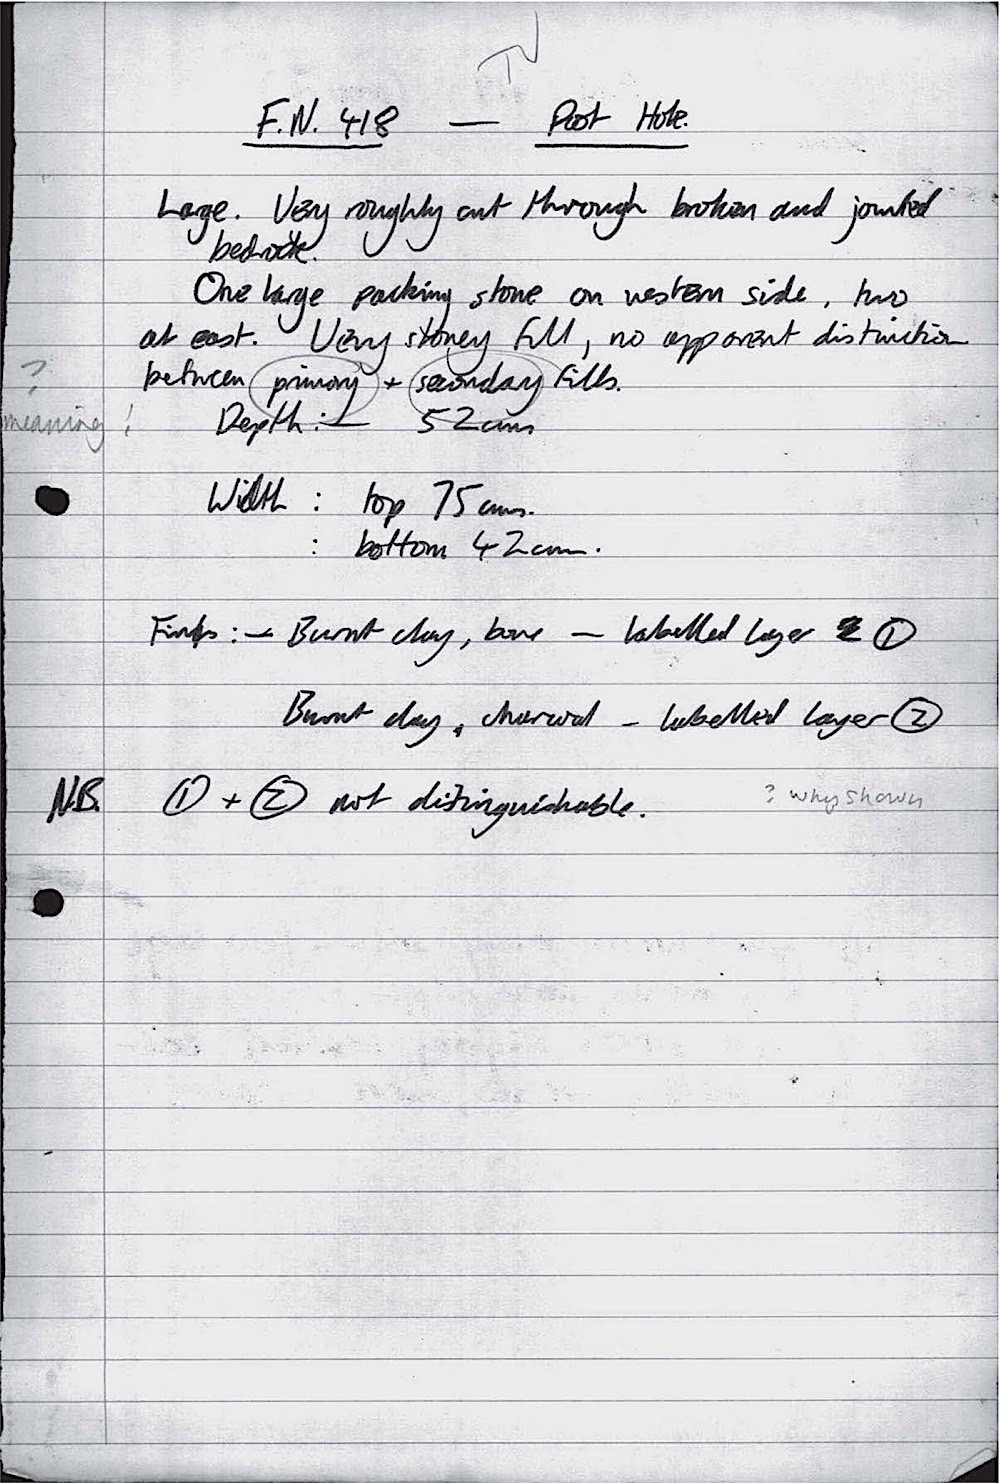 F.N. 418 — Post Hole.
Large. Very roughly cut through broken and jointed
bedrock.
One large packing stone on western side, two
at east. Very stoney fill, no apparent distinction
?
between primary + secondary fills.
meaning!
Depth:— 52cms
Width : top 75cms.
: bottom 42cm.
Finds:— Burnt clay, bone — labelled layer ①
Burnt clay, charcoal — labelled layer ②
N.B. ① + ② not distinguishable. ? why shown